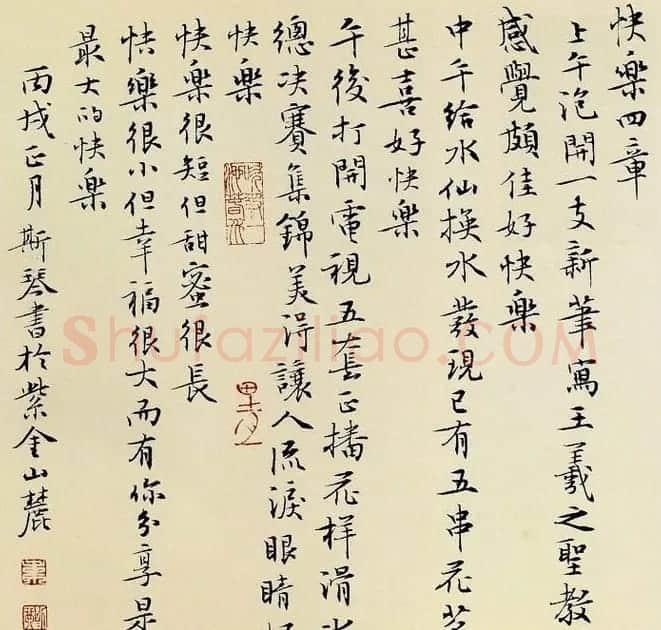 快樂四章
上午泡開一支新筆寫王羲之聖教
感覺頗佳好快樂
中午給水仙換水發現已有五串花
甚喜好快樂
午後打開電視五套正播花样滑
總决賽集錦美得讓人流淚眼睛
快樂
快樂很短但甜蜜很長
快樂很小但幸福很大而有你分享是
最大的快樂
丙戌正月斯琴書於紫金山麓
Shufaziliao.COM